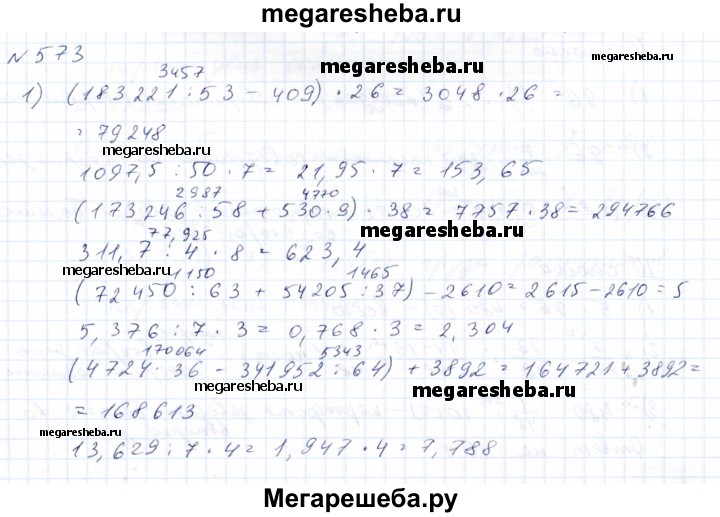 megaresheba.ru
№ 573
megaresheba.ru
megaresheba.ru
3457
1) (183221 : 53 - 409) · 26 = 3048 · 26 =
= 79248
megaresheba.ru
1097,5 : 50 · 7 = 21,95 · 7 = 153,65
2987 4770
(173246 : 58 + 530·9) · 38 = 7757 · 38 = 294766
megaresheba.ru
77,925
311,7 : 4 · 8 = 623,4
megaresheba.ru
1150 1465
(72450 : 63 + 54205 : 37) - 2610 = 2615 - 2610 = 5
5,376 : 7 · 3 = 0,768 · 3 = 2,304
170064 5343
(4724 · 36 - 341952 : 64) + 3892 = 164721 + 3892 =
megaresheba.ru
megaresheba.ru
= 168613
megaresheba.ru
13,629 : 7 · 4 = 1,947 · 4 = 7,788
Мегарешеба.ру